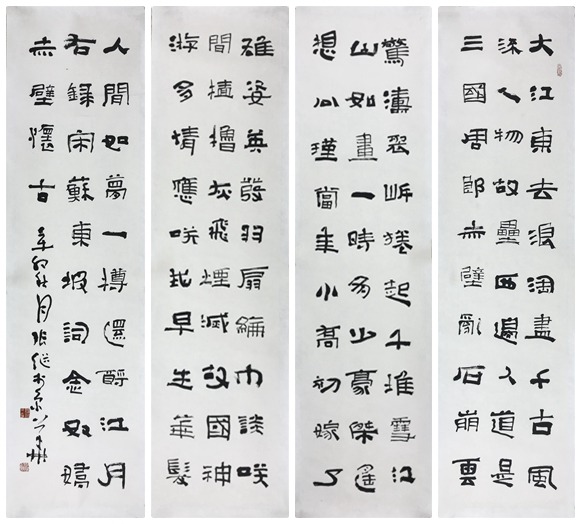 大江東去浪淘盡千古風
流人物故壘西邊人道是
三國周郎赤壁亂石崩雲
驚濤裂岸捲起千堆雪江
山如畫一時多少豪傑遙
想公瑾當年小喬初嫁了
雄姿英發羽扇綸巾談咲
間檣櫓灰飛煙滅故國神
游多情應咲我早生華髮
人間如夢一樽還酹江月
右錄宋蘇東坡詞念奴嬌
赤壁懷古 辛卯秋月張繼於京